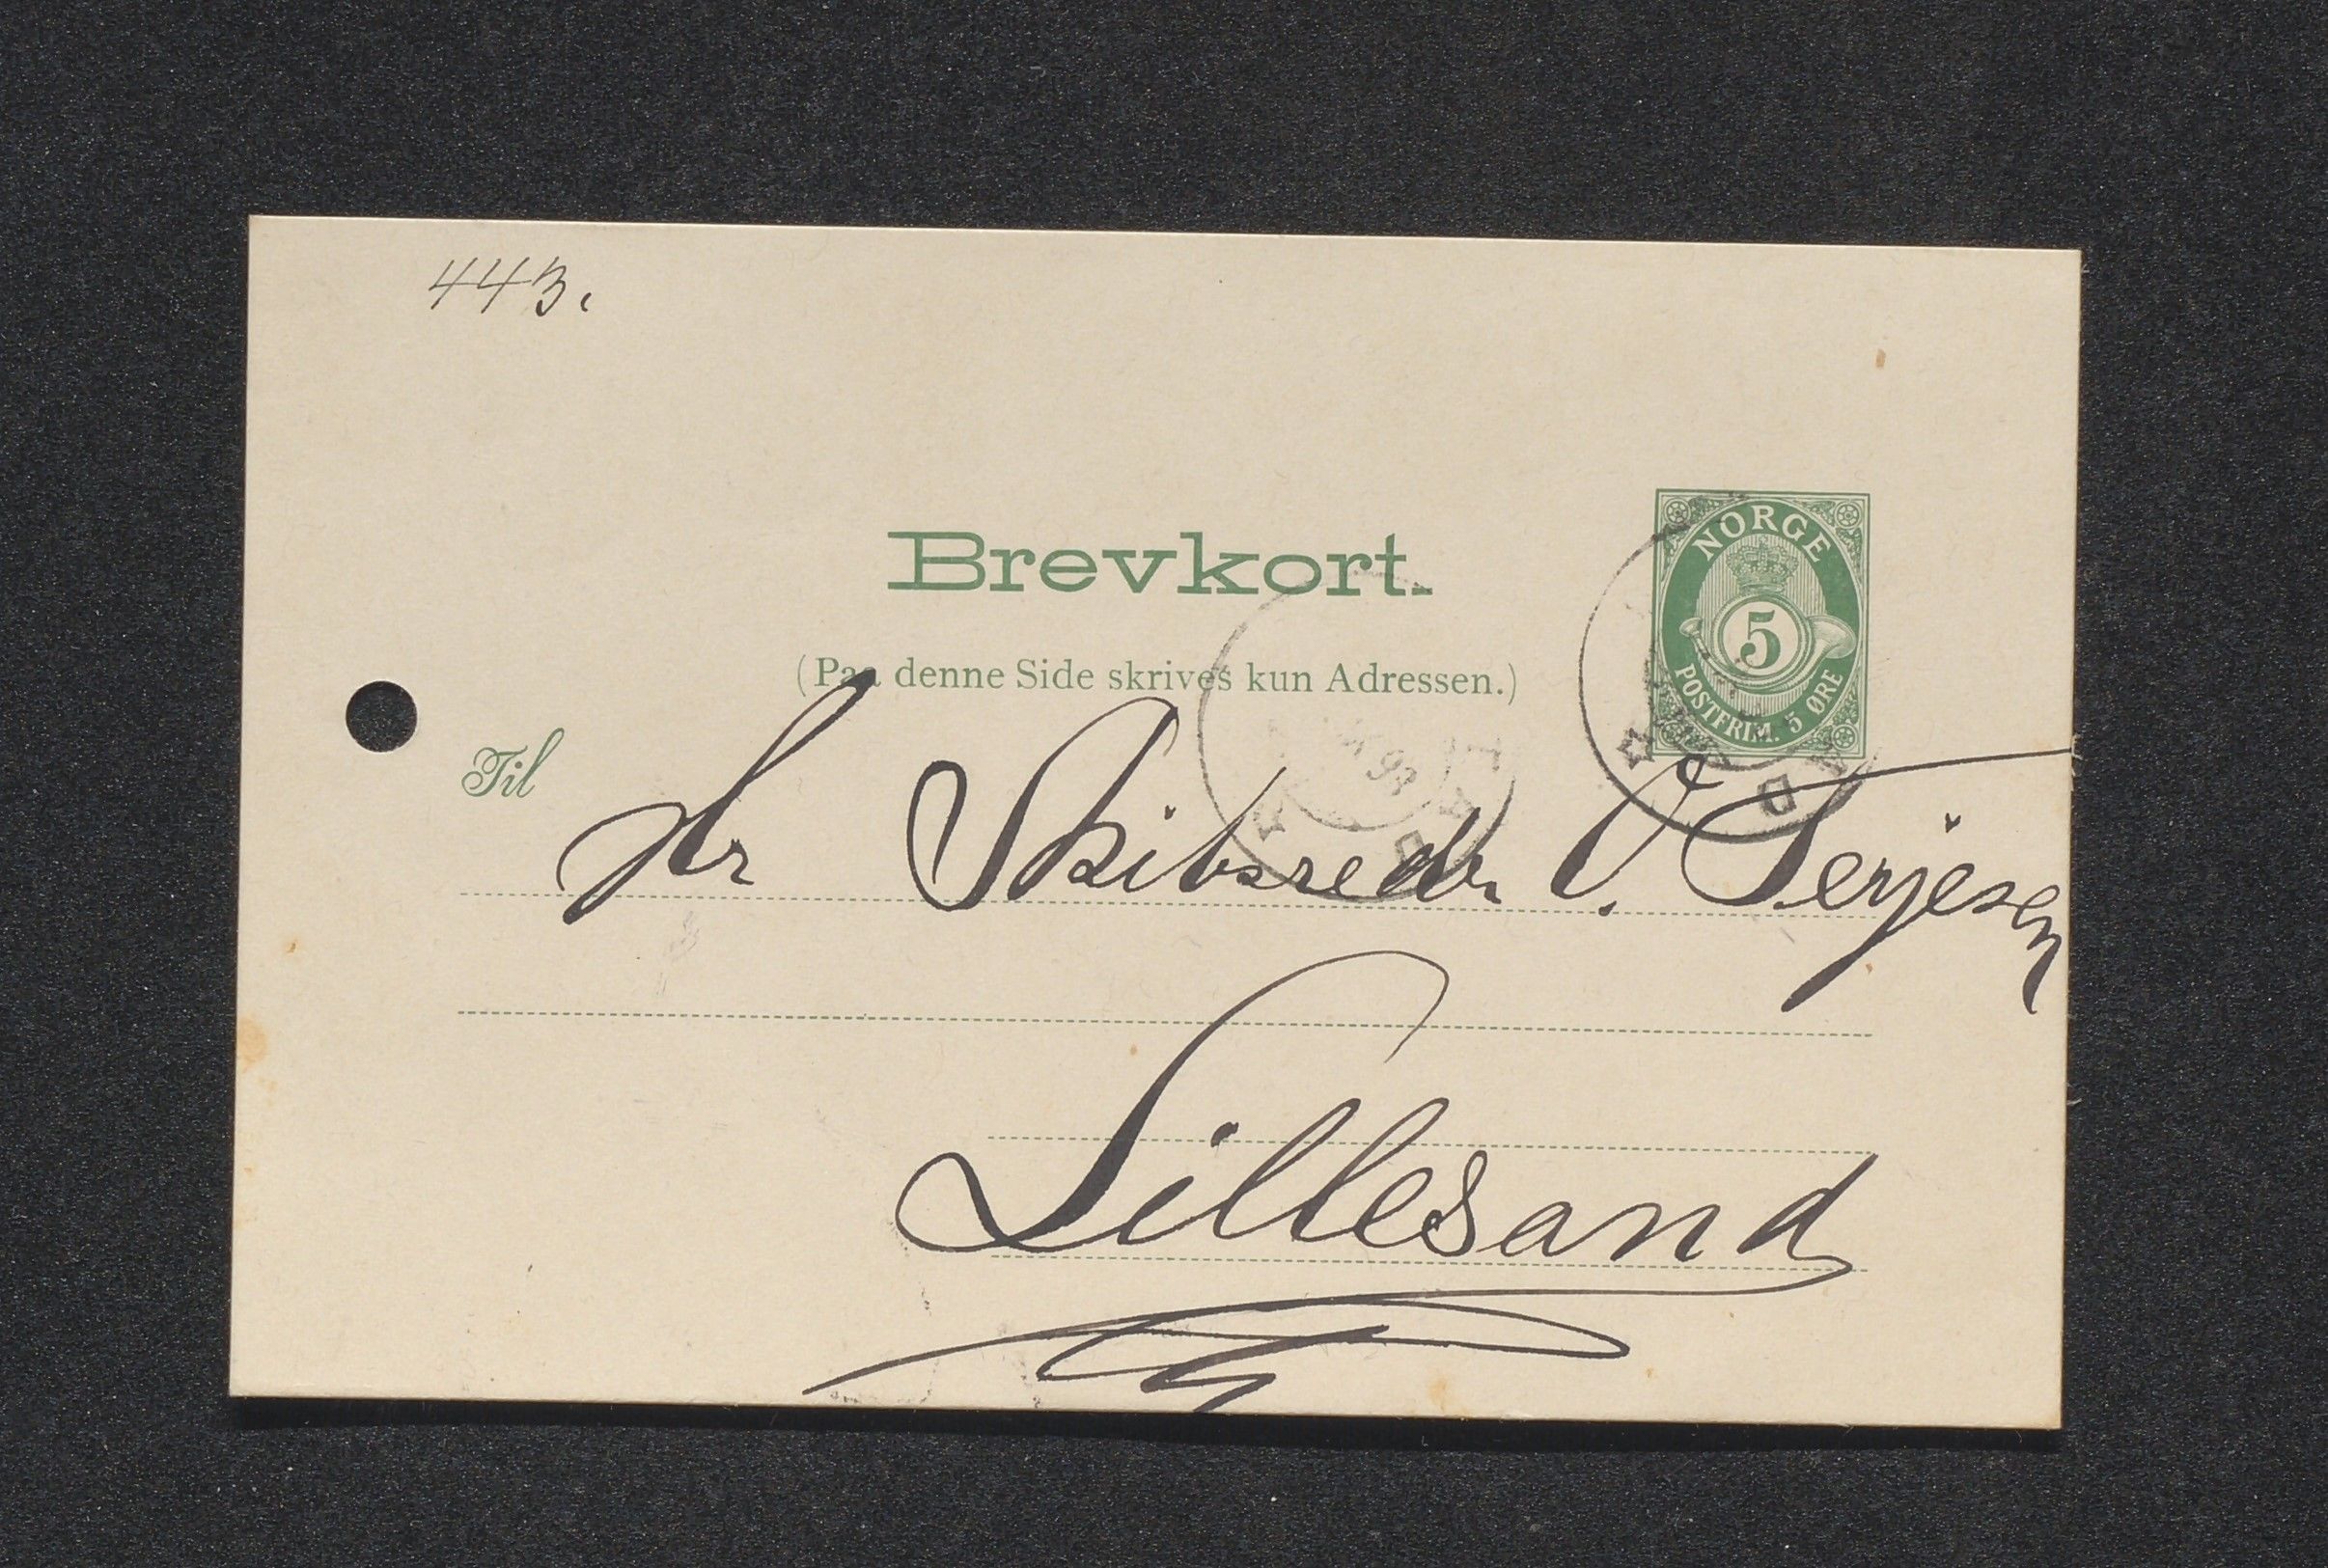 443.
Brevkort.
NORGE
5
POSTFRIM. 5 ØRE
(Paa denne Side skrives kun Adressen.)
Til
Hr Skibsredr O. Terjesen
Lillesand